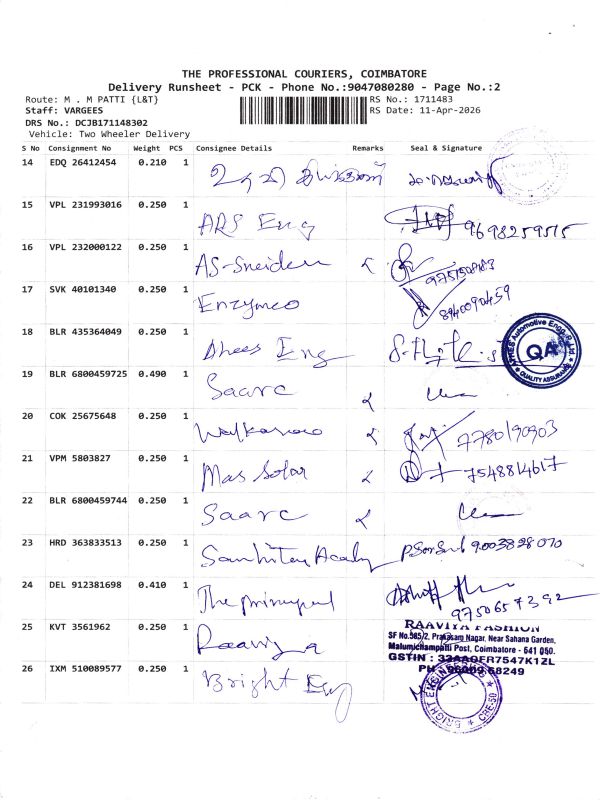 THE PROFESSIONAL COURIERS, COIMBATORE
Delivery Runsheet - PCK - Phone No.:9047080280 - Page No.:2
Route: M . M PATTI {L&T} RS No.: 1711483
Staff: VARGEES RS Date: 11-Apr-2026
DRS No.: DCJB171148302
Vehicle: Two Wheeler Delivery
S No Consignment No Weight PCS Consignee Details Remarks Seal & Signature
14 EDQ 26412454 0.210 1
15 VPL 231993016 0.250 1 ARS Eng 9698259515
16 VPL 232000122 0.250 1
17 SVK 40101340 0.250 1 Enzymco 8940090459
18 BLR 435364049 0.250 1 Dhees Eng QA QUALITY ASSURANCE
19 BLR 6800459725 0.490 1 Saarc
20 COK 25675648 0.250 1 7780190903
21 VPM 5803827 0.250 1 Mas Solar 7548814617
22 BLR 6800459744 0.250 1 Saarc
23 HRD 363833513 0.250 1 9003828070
24 DEL 912381698 0.410 1 The principal 9750657392
25 KVT 3561962 0.250 1 Raaviya RAAVIYA FASHION
SF No.585/2, Prakasam Nagar, Near Sahana Garden,
Malumichampatti Post, Coimbatore - 641 050.
GSTIN : 33AAOFR7547K1ZL
26 IXM 510089577 0.250 1 Bright Eng